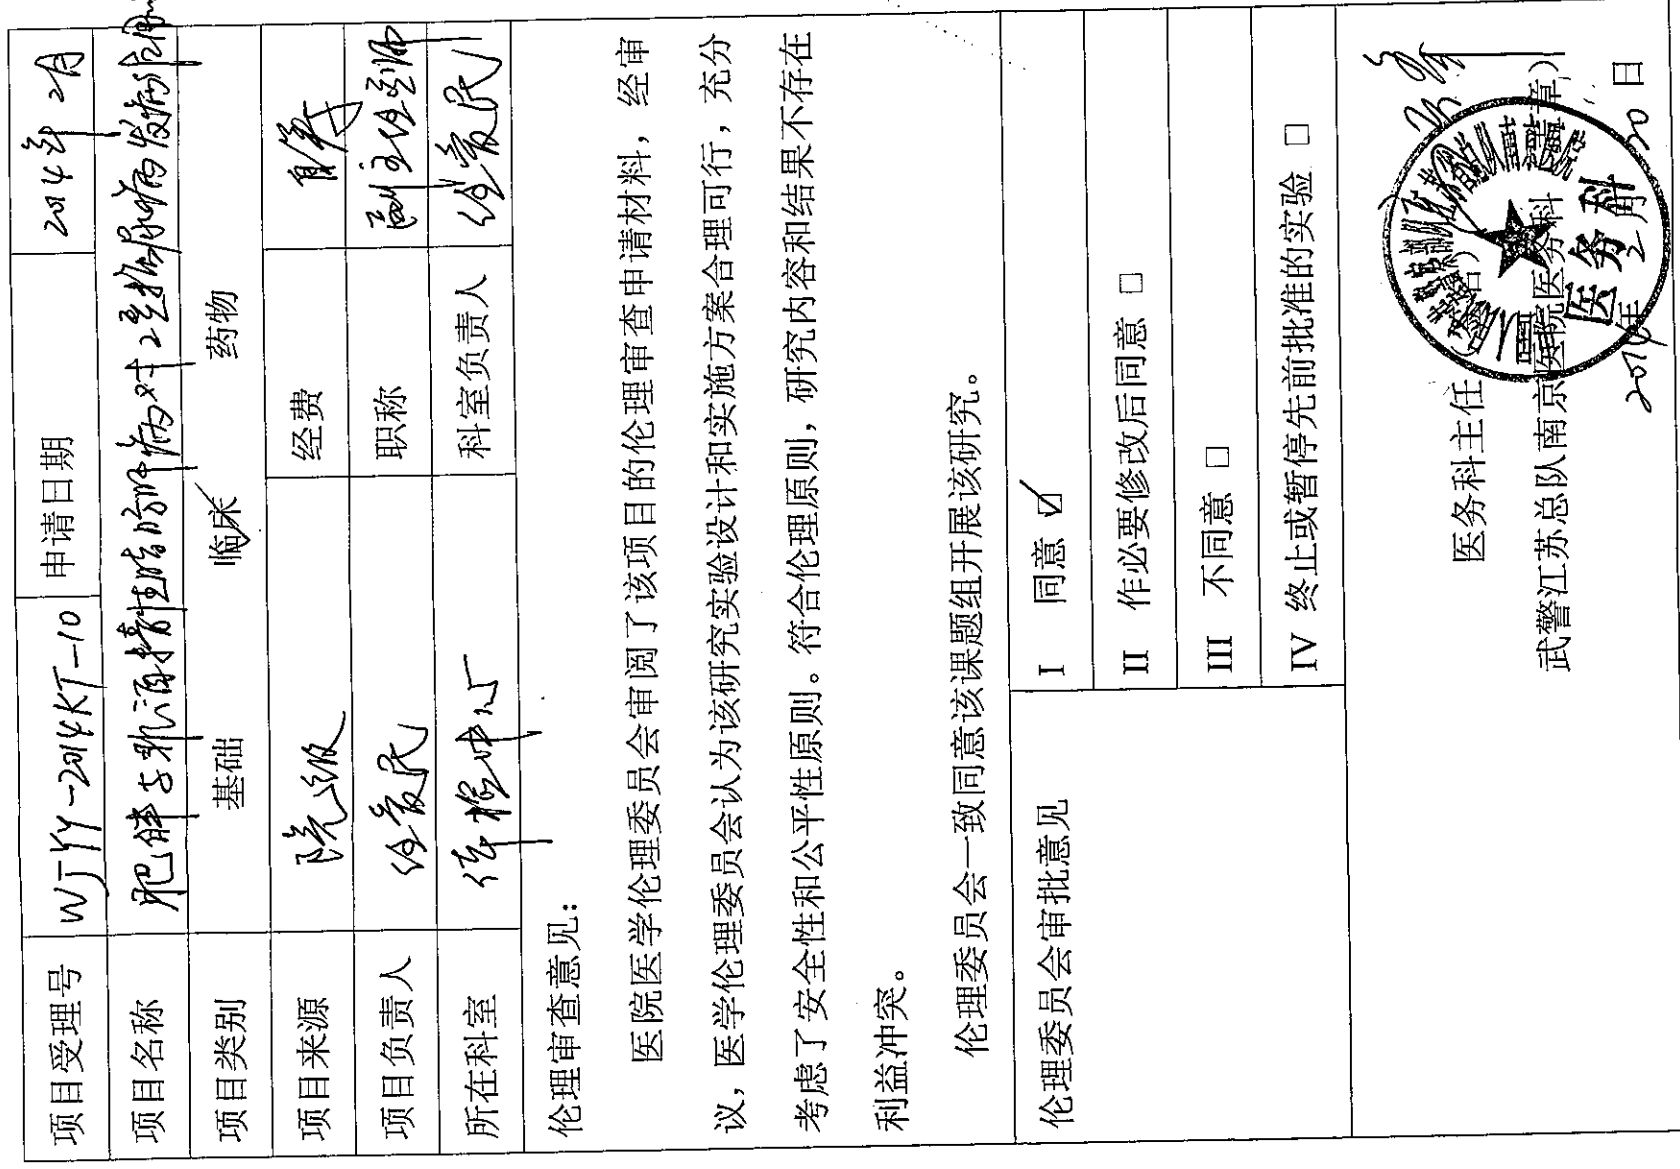 项目受理号 WJYY-2014KT-10 申请日期 2014年 2月
项目名称 肥胖与非酒精性脂肪肝病对2型糖尿病发病
项目类别 基础 临床 药物
项目来源 院级 经费 自筹
项目负责人 职称 副主任医师
所在科室 体检中心 科室负责人
伦理审查意见：
医院医学伦理委员会审阅了该项目的伦理审查申请材料，经审
议，医学伦理委员会认为该研究实验设计和实施方案合理可行，充分
考虑了安全性和公平性原则。符合伦理原则，研究内容和结果不存在
利益冲突。
伦理委员会一致同意该课题组开展该研究。
伦理委员会审批意见
I 同意 ☑
II 作必要修改后同意 □
III 不同意 □
IV 终止或暂停先前批准的实验 □
医务科主任
武警江苏总队南京医院医务科 章）
医务科
2014年 2月 20日